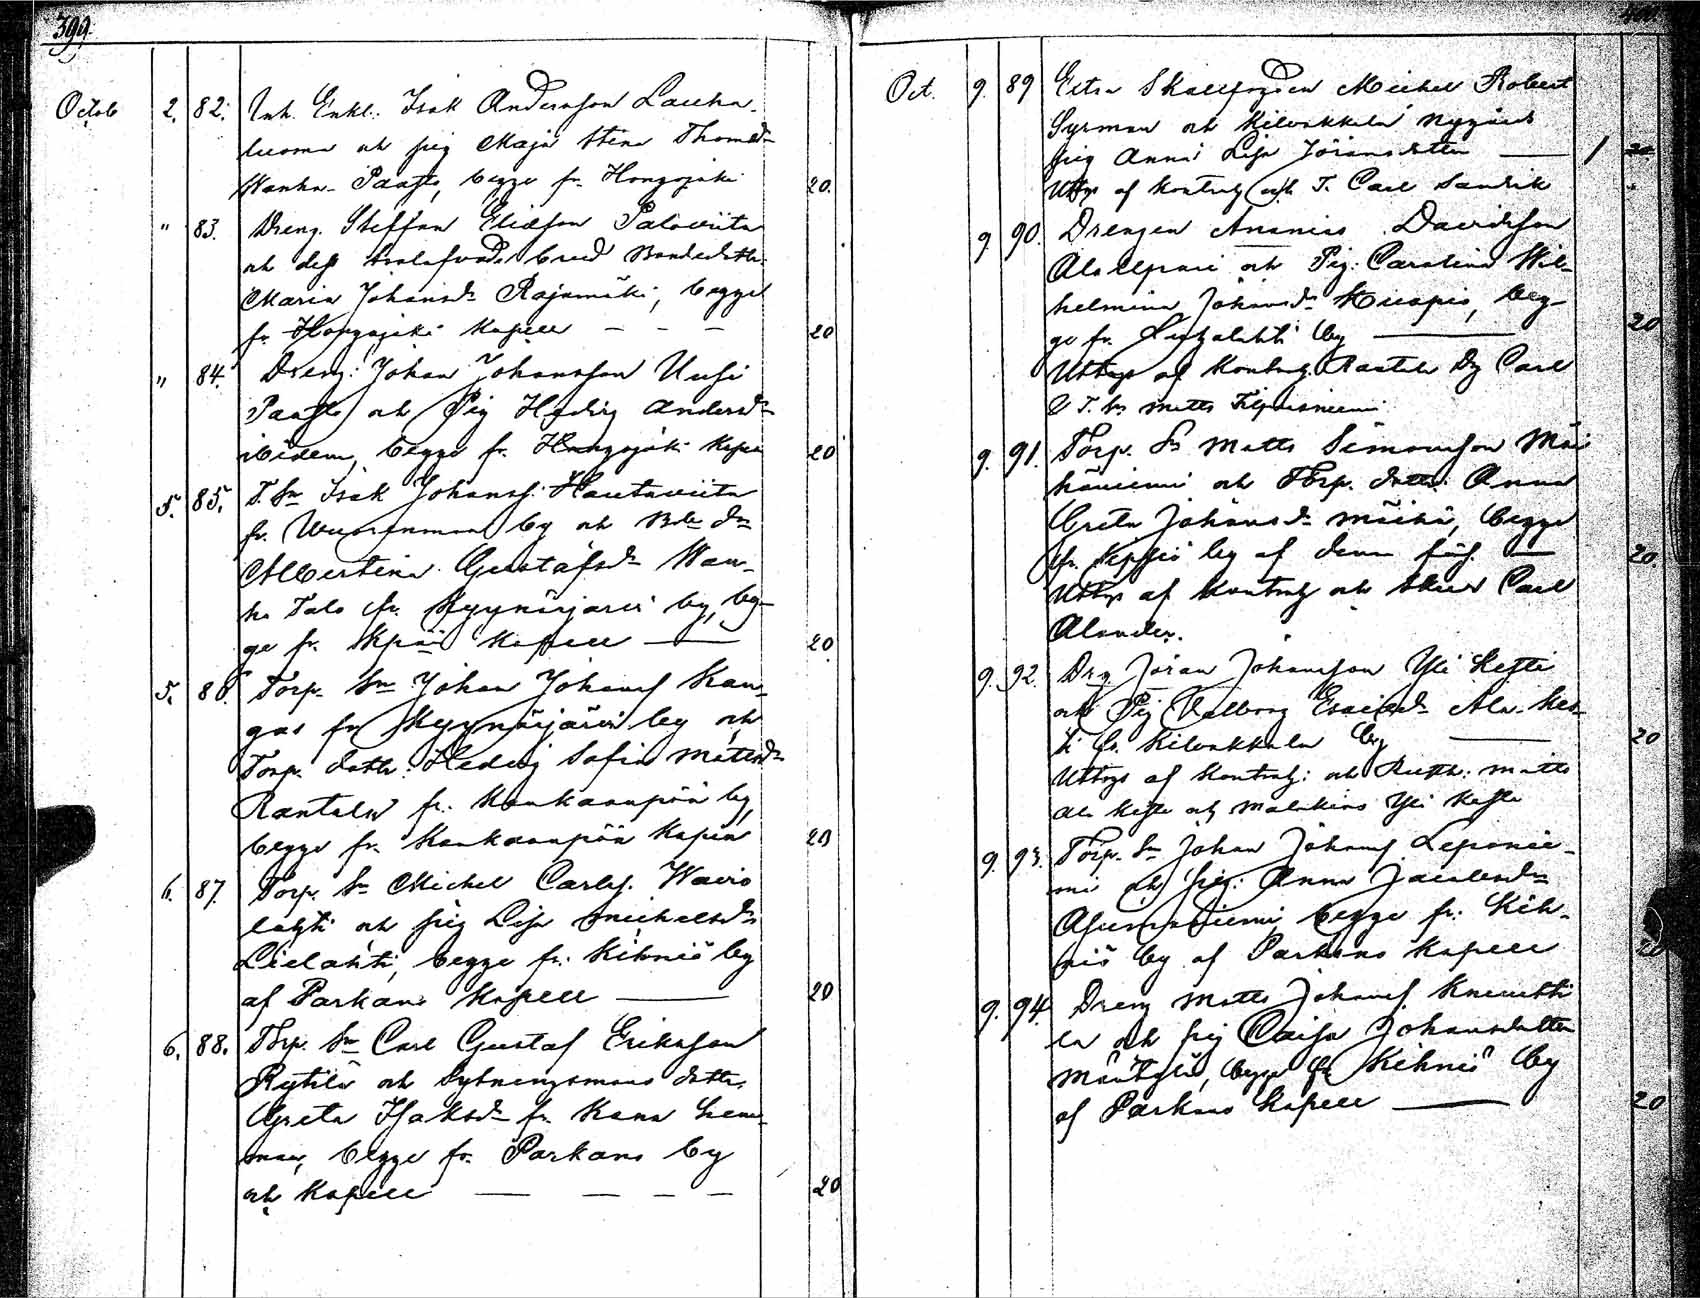 399.
Octob 2. 82. Inh. Enkl. Isak Andersson Lauha-
luoma och pig Maja Stina Thomasdr
Wanha-Paasto, begge fr. Hongojoki 20.
" 83. Dreng. Steffan Eliasson Paloviita
och dess trolofvade brud Bondedottr.
Maria Johansdr Rajamäki, begge
fr. Hongojoki Kapell — — — 20
" 84. Dreng: Johan Johansson Uusi
Paasto och Pig Hedvig Andersdr
ibidem, begge fr. Hongojoki Kapell 20
5. 85. T. Sn Isak Johanss. Hautaviita
fr. Wuorenmaa by och Bde dr
Albertina Gustafsdr Wan-
ha Talo fr. Kyynärjärvi by, beg-
ge fr. Kapell — 20
5. 86. Torp. Sn Johan Johanss Kan-
gas fr Kyynärjärvi by och
Torp. dottr: Hedvig Sofia Mattsdr
Rantala fr. Kankaanpää by,
begge fr. Kankaanpää Kapell 20
6. 87. Torp. Sn Michel Carlss. Wavio
lahti och pig Lisa Michelsdr
Lielahti, begge fr. Kihniö by
af Parkano Kapell — 20
6. 88. Torp. Sn Carl Gustaf Eriksson
Rytilä och Sytningsmans dottr.
Greta Isaksdr fr. Kana hem-
man, begge fr. Parkano by
och Kapell — — — — 20
Oct. 9. 89 Extra Skallfogden Michel Robert
Syrman och Kilvakkala Nygård
pig Anna Lisa Jöransdotter — 1
Uttogs af Kontrah och T. Carl Sandvik
9. 90. Drengen Ananias Davidsson
Alaluani och Pig. Carolina Wil-
helmina Johansdr Kuapio, beg-
ge fr. by — 20
Uttogs af Kontrah Carl
T. Sn Matts
9. 91. Torp. Sn Matts Simonsson Mä
häniemi och Torp. dottr. Anna
Greta Johansdr Mäihä, begge
fr. by af denna förs. — 20.
Uttogs af Kontrah och Carl
Alander.
9. 92. Drg. Jöran Johansson Yli Kesti
och Pig Valborg Esaiasdr Ala-Kes-
ti fr. Kilvakkala by — 20
Uttogs af Kontrah: och Rusth: Matts
Ala Kesti och Malakias Yli Kesti
9. 93. Torp. Sn Johan Johanss Leponie-
mi och pig: Anna Jacobsdr
begge fr. Kih-
niö by af Parkano Kapell 20
9. 94. Dreng Matts Johanss. Knuutti
la och pig Caisa Johansdotter
Mäntylä, begge fr Kihniö by
af Parkano Kapell — 20